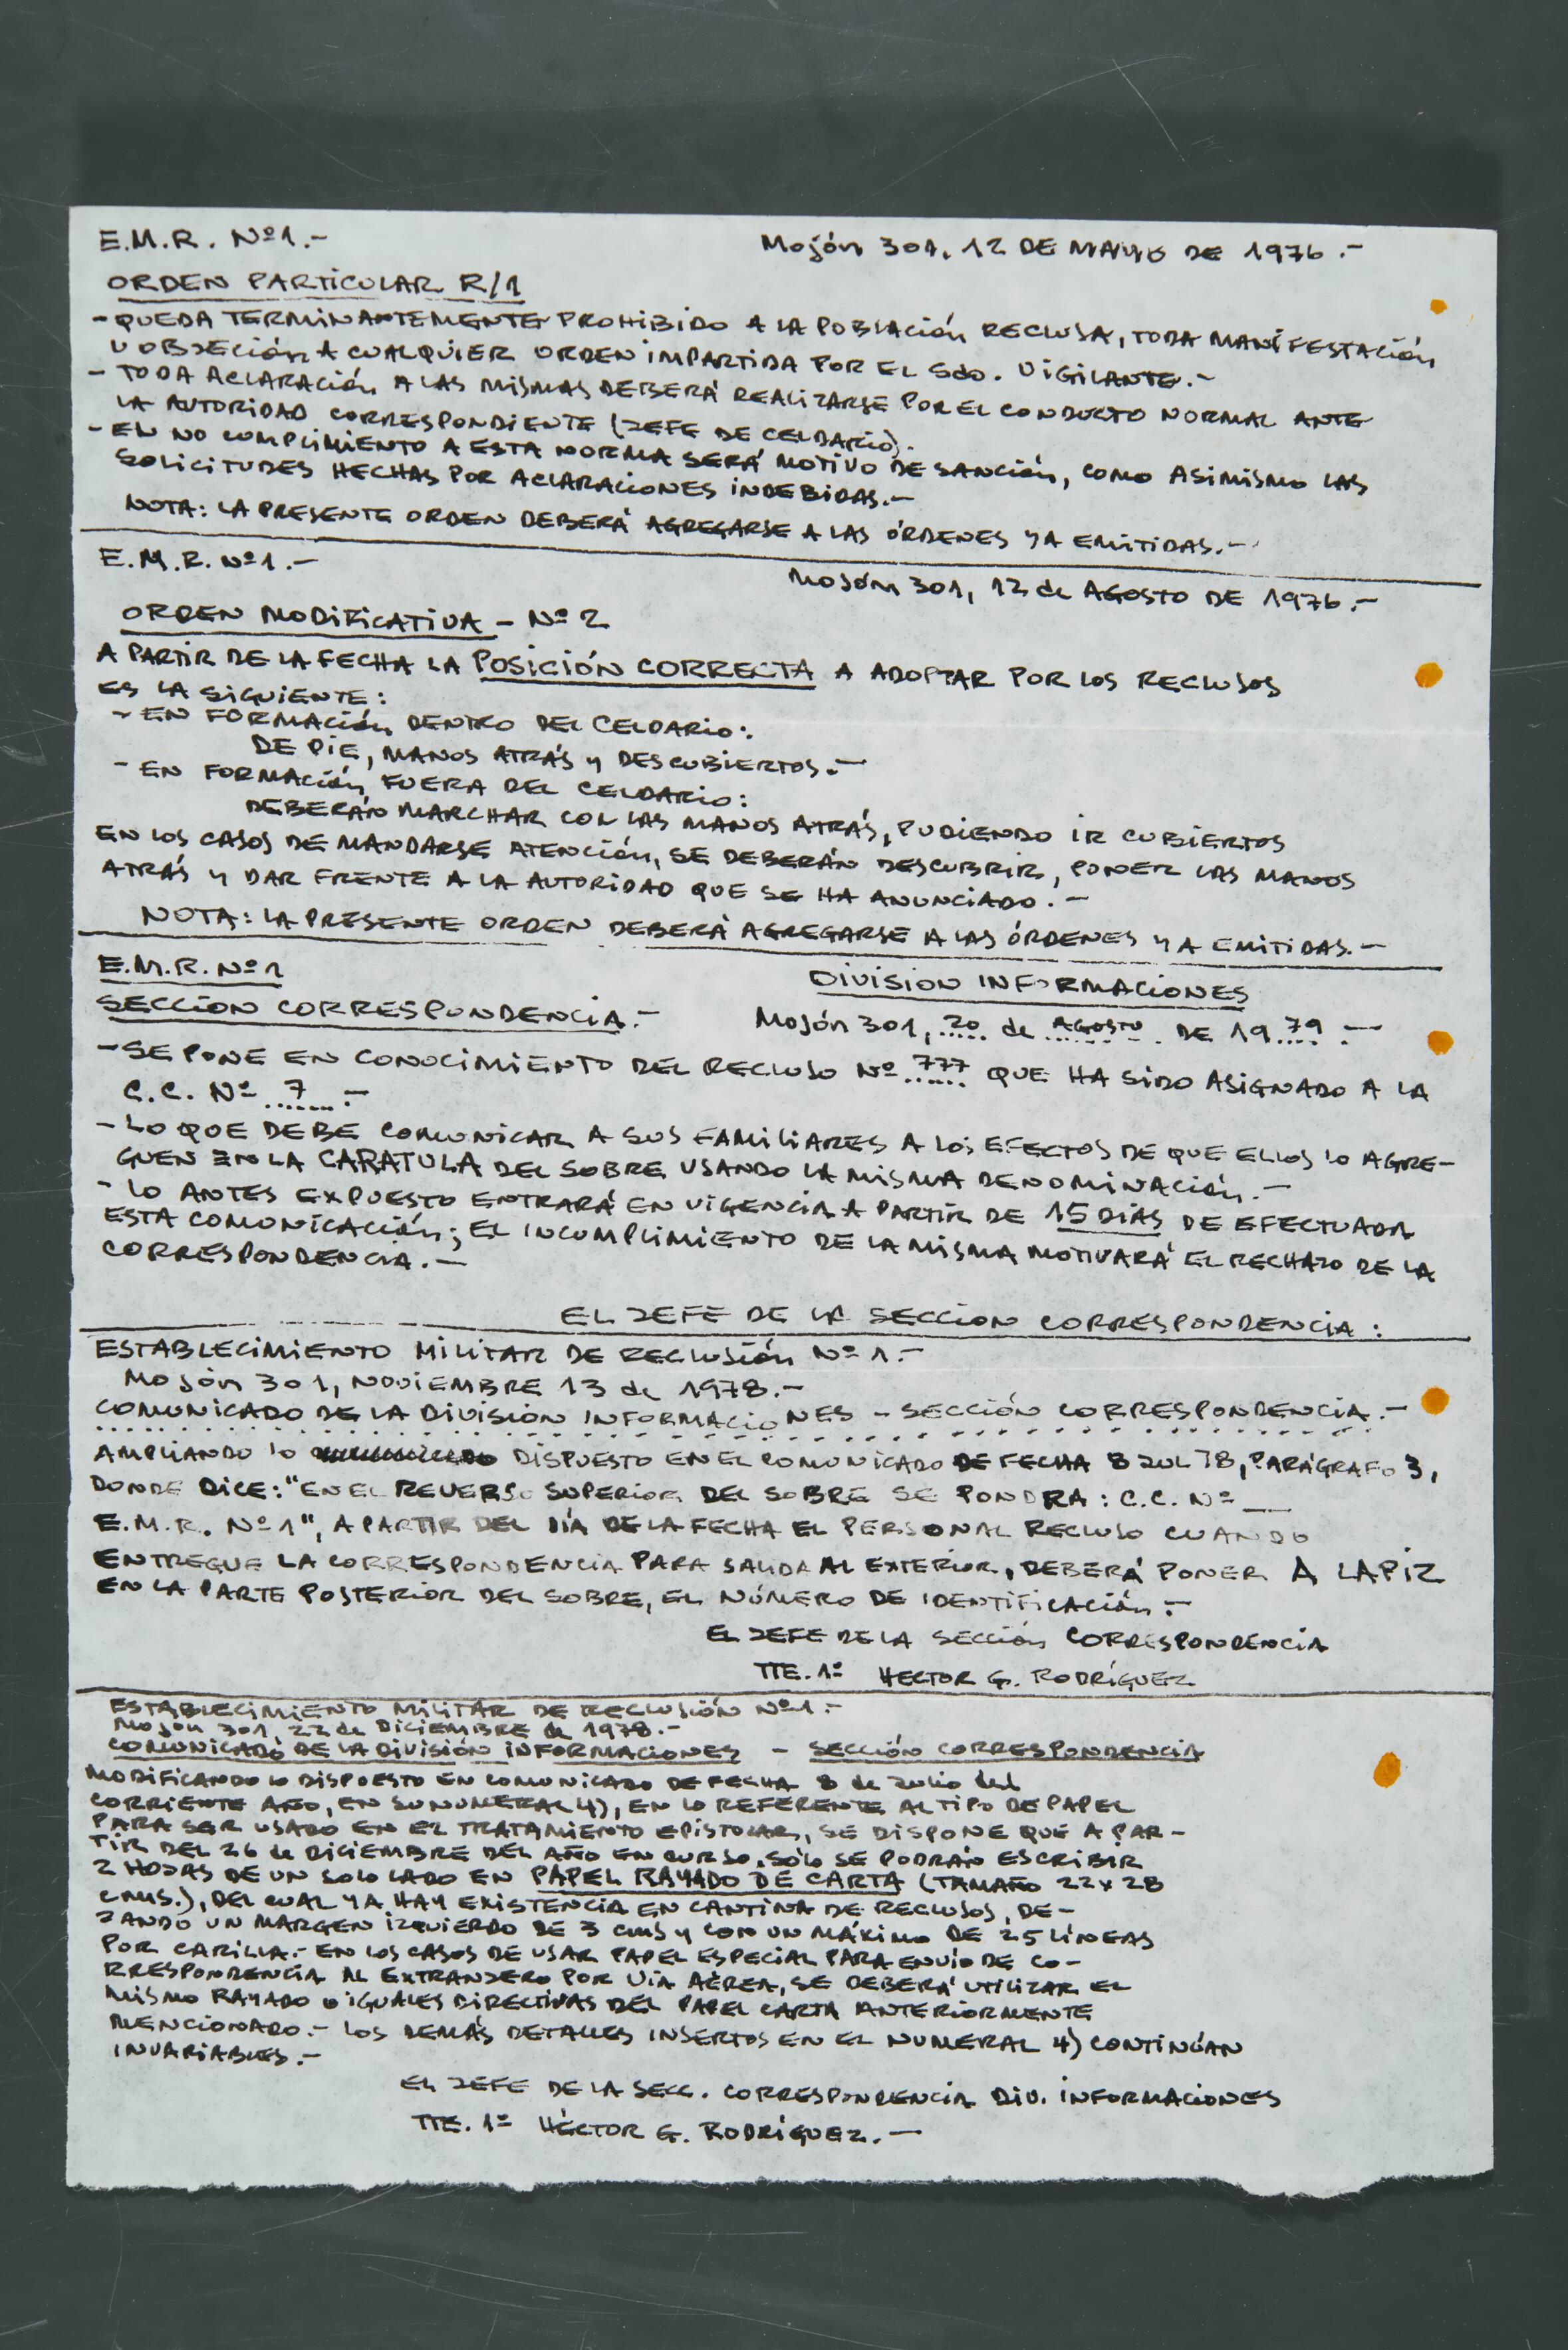 E.M.R. Nº1.-
Mojón 301, 12 DE MAYO DE 1976.-
ORDEN PARTICULAR R/1
- QUEDA TERMINANTEMENTE PROHIBIDO A LA POBLACIÓN RECLUSA, TODA MANIFESTACIÓN
U OBJECIÓN A CUALQUIER ORDEN IMPARTIDA POR EL Sdo. VIGILANTE.-
- TODA ACLARACIÓN A LAS MISMAS DEBERÁ REALIZARSE POR EL CONDUCTO NORMAL ANTE
LA AUTORIDAD CORRESPONDIENTE (JEFE DE CELDARIO).
- EN NO CUMPLIMIENTO A ESTA NORMA SERÁ MOTIVO DE SANCIÓN, COMO ASIMISMO LAS
SOLICITUDES HECHAS POR ACLARACIONES INDEBIDAS.-
NOTA: LA PRESENTE ORDEN DEBERÁ AGREGARSE A LAS ÓRDENES YA EMITIDAS.-
E.M.R. Nº1.-
Mojón 301, 12 de AGOSTO DE 1976.-
ORDEN MODIFICATIVA - Nº 2
A PARTIR DE LA FECHA LA POSICIÓN CORRECTA A ADOPTAR POR LOS RECLUSOS
ES LA SIGUIENTE:
- EN FORMACIÓN DENTRO DEL CELDARIO:
DE PIE, MANOS ATRÁS Y DESCUBIERTOS.-
- EN FORMACIÓN FUERA DEL CELDARIO:
DEBERÁN MARCHAR CON LAS MANOS ATRÁS, PUDIENDO IR CUBIERTOS
EN LOS CASOS DE MANDARSE ATENCIÓN, SE DEBERÁN DESCUBRIR, PONER LAS MANOS
ATRÁS Y DAR FRENTE A LA AUTORIDAD QUE SE HA ANUNCIADO.-
NOTA: LA PRESENTE ORDEN DEBERÁ AGREGARSE A LAS ÓRDENES YA EMITIDAS.-
E.M.R. Nº1
DIVISION INFORMACIONES
SECCION CORRESPONDENCIA.-
Mojón 301, 20 de AGOSTO DE 1979.-
- SE PONE EN CONOCIMIENTO DEL RECLUSO Nº 777 QUE HA SIDO ASIGNADO A LA
C.C. Nº 7.-
- LO QUE DEBE COMUNICAR A SUS FAMILIARES A LOS EFECTOS DE QUE ELLOS LO AGRE-
GUEN EN LA CARATULA DEL SOBRE USANDO LA MISMA DENOMINACIÓN.-
- LO ANTES EXPUESTO ENTRARÁ EN VIGENCIA A PARTIR DE 15 DIAS DE EFECTUADA
ESTA COMUNICACIÓN; EL INCUMPLIMIENTO DE LA MISMA MOTIVARÁ EL RECHAZO DE LA
CORRESPONDENCIA.-
EL JEFE DE LA SECCION CORRESPONDENCIA:
ESTABLECIMIENTO MILITAR DE RECLUSIÓN Nº 1.-
Mojón 301, NOVIEMBRE 13 de 1978.-
COMUNICADO DE LA DIVISIÓN INFORMACIONES - SECCIÓN CORRESPONDENCIA.-
AMPLIANDO lo DISPUESTO EN EL COMUNICADO DE FECHA 8 JUL 78, PARÁGRAFO 3,
DONDE DICE: "EN EL REVERSO SUPERIOR DEL SOBRE SE PONDRA: C.C. Nº __
E.M.R. Nº1", A PARTIR DEL DÍA DE LA FECHA EL PERSONAL RECLUSO CUANDO
ENTREGUE LA CORRESPONDENCIA PARA SALIDA AL EXTERIOR, DEBERÁ PONER A LAPIZ
EN LA PARTE POSTERIOR DEL SOBRE, EL NÚMERO DE IDENTIFICACIÓN.-
EL JEFE DE LA SECCIÓN CORRESPONDENCIA
TTE. 1º HECTOR G. RODRÍGUEZ
ESTABLECIMIENTO MILITAR DE RECLUSIÓN Nº1.-
Mojón 301, 22 de DICIEMBRE de 1978.-
COMUNICADO DE LA DIVISIÓN INFORMACIONES - SECCIÓN CORRESPONDENCIA
MODIFICANDO lo DISPUESTO EN COMUNICADO DE FECHA 8 de Julio del
CORRIENTE AÑO, EN SU NUMERAL 4), EN LO REFERENTE AL TIPO DE PAPEL
PARA SER USADO EN EL TRATAMIENTO EPISTOLAR, SE DISPONE QUE A PAR-
TIR DEL 26 de DICIEMBRE DEL AÑO EN CURSO, SÓLO SE PODRÁN ESCRIBIR
2 HOJAS DE UN SOLO LADO EN PAPEL RAYADO DE CARTA (TAMAÑO 22x28
CMS.), DEL CUAL YA HAY EXISTENCIA EN CANTINA DE RECLUSOS, DE-
JANDO UN MARGEN IZQUIERDO DE 3 CMS Y CON UN MÁXIMO DE 25 LÍNEAS
POR CARILLA.- EN LOS CASOS DE USAR PAPEL ESPECIAL PARA ENVÍO DE CO-
RRESPONDENCIA AL EXTRANJERO POR VÍA AÉREA, SE DEBERÁ UTILIZAR EL
MISMO RAYADO e IGUALES DIRECTIVAS DEL PAPEL CARTA ANTERIORMENTE
MENCIONADO.- LOS DEMÁS DETALLES INSERTOS EN EL NUMERAL 4) CONTINÚAN
INVARIABLES.-
EL JEFE DE LA SECC. CORRESPONDENCIA DIV. INFORMACIONES
TTE. 1º HÉCTOR G. RODRÍGUEZ.-